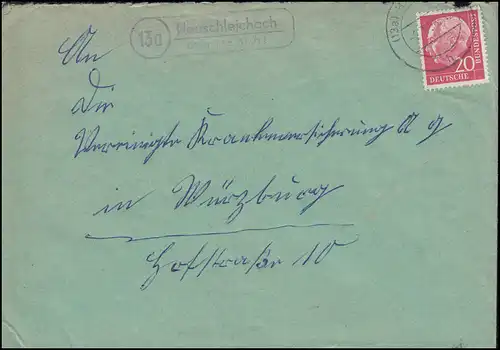 13a
Neuschleichach
(13a)
20
DEUTSCHE
BUNDESPOST
An
Die
Vereinigte Krankenversicherung A g
in Würzburg
Hofstraße 10